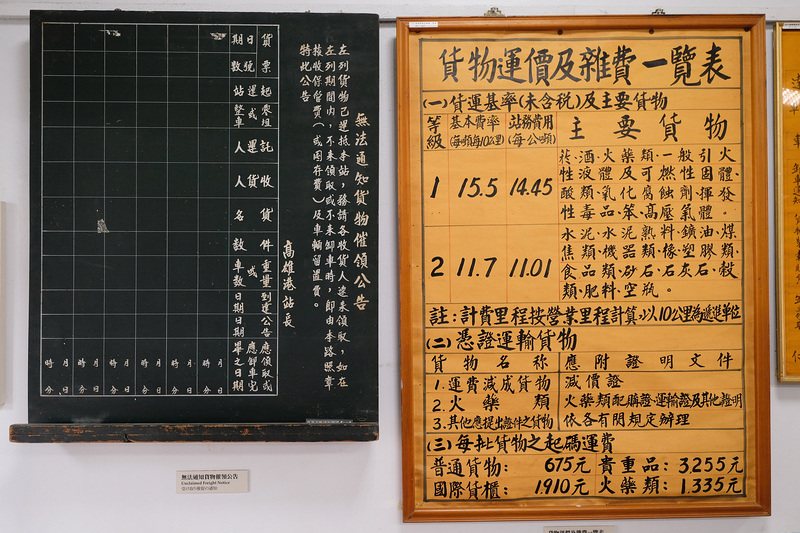 無法通知貨物催領公告
左列貨物已運抵本站，務請各收貨人速來領取，如在
左列期間內，不來領取或不來卸車時，即由本路照章
核收保管費（或囤存費）及車輛留置費。
特此公告
高雄港站長
貨票起零託收貨件重量到達公告應領取或
日號運或運貨名數或日期日期應卸車完
期數站整車人人車數畢之日期
月 日 時 分
無法通知貨物催領公告
Unclaimed Freight Notice
貨物運價及雜費一覽表
(一)貨運基率(未含稅)及主要貨物
等級 基本費率(每噸每10公里) 站務費用(每公噸) 主要貨物
1 15.5 14.45
菸、酒、火藥類、一般引火
性液體及可燃性固體、
酸類、氧化腐蝕劑、揮發
性毒品、笨、高壓氣體。
2 11.7 11.01
水泥、水泥熟料、鑛油、煤
焦類、機器類、橡塑膠類、
食品類、砂石、石灰石、穀
類、肥料、空瓶。
註：計費里程按營業里程計算，以10公里為遞進單位
(二)憑證運輸貨物
貨物名稱 應附證明文件
1.運費減成貨物 減價證
2.火藥類 火藥類配購證、運輸證及其他證明
3.其他應提出證件之貨物 依各有関規定辦理
(三)每批貨物之起碼運費
普通貨物： 675元 貴重品： 3,255元
國際貨櫃： 1,910元 火藥類： 1,335元